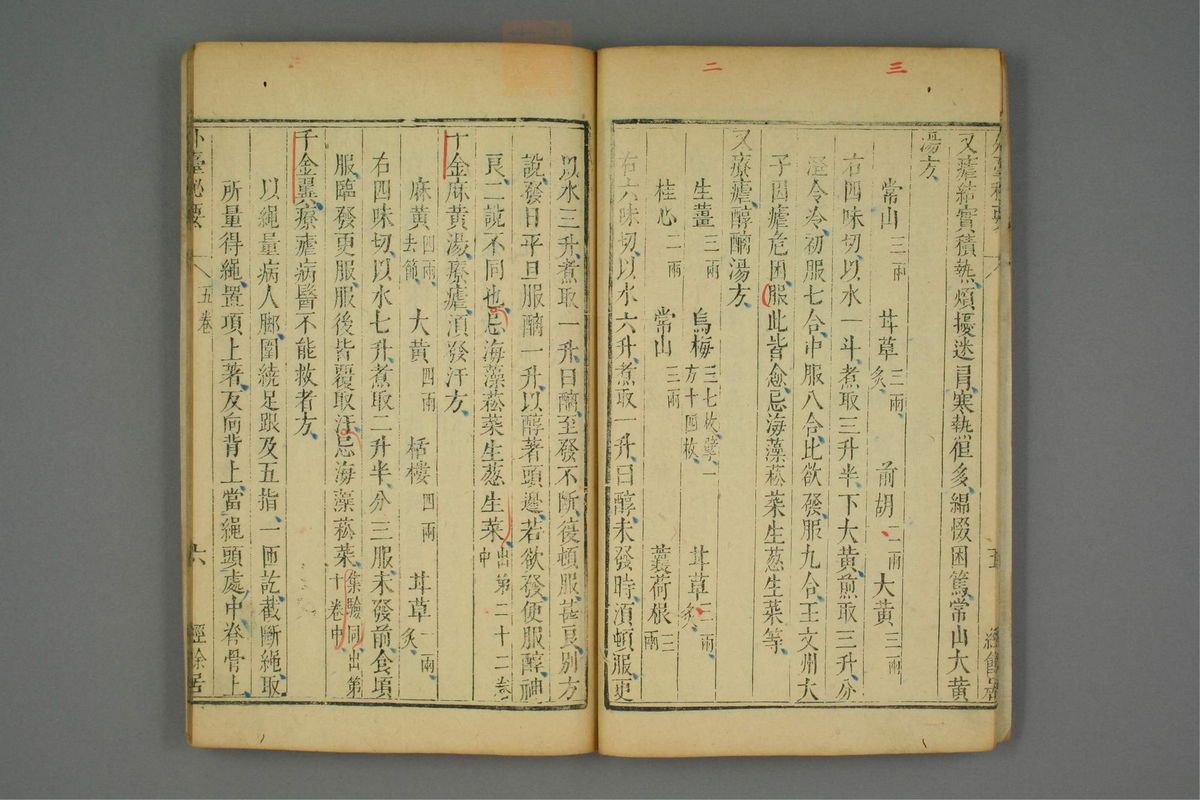 三
二
又瘧結實積熱煩擾迷冐寒熱但多綿惙困篤常山大黃
湯方
常山三兩 甘草三兩炙 前胡二兩 大黃三兩
右四味切以水一斗煮取三升半下大黃煎取三升分
溼令冷初服七合中服八合比欲發服九合王文州大
子因瘧危困服此皆愈忌海藻菘菜生葱生菜等
又療瘧醇醨湯方
生薑三兩 烏梅三七枚擘一方十四枚 甘草三兩炙
桂心二兩 常山三兩 蘘荷根三兩
右六味切以水六升煮取一升曰醇未發時湏頓服更
以水三升煮取一升曰醨至發不斷復頓服甚良別方
說發日平旦服醨一升以醇著頭邊若欲發便服醇神
良二說不同也忌海藻菘菜生葱生菜出第二十二卷中
千金麻黃湯療瘧湏發汗方
麻黃四兩去節 大黃四兩 栝樓四兩 甘草一兩炙
右四味切以水七升煮取二升半分三服未發前食頃
服臨發更服服後皆覆取汗忌海藻菘菜集驗同出第十卷中
千金翼療瘧病醫不能救者方
以繩量病人脚圍繞足跟及五指一匝訖截斷繩取
所量得繩置項上著反向背上當繩頭處中脊骨上
外臺秘要 五卷 六 經餘居